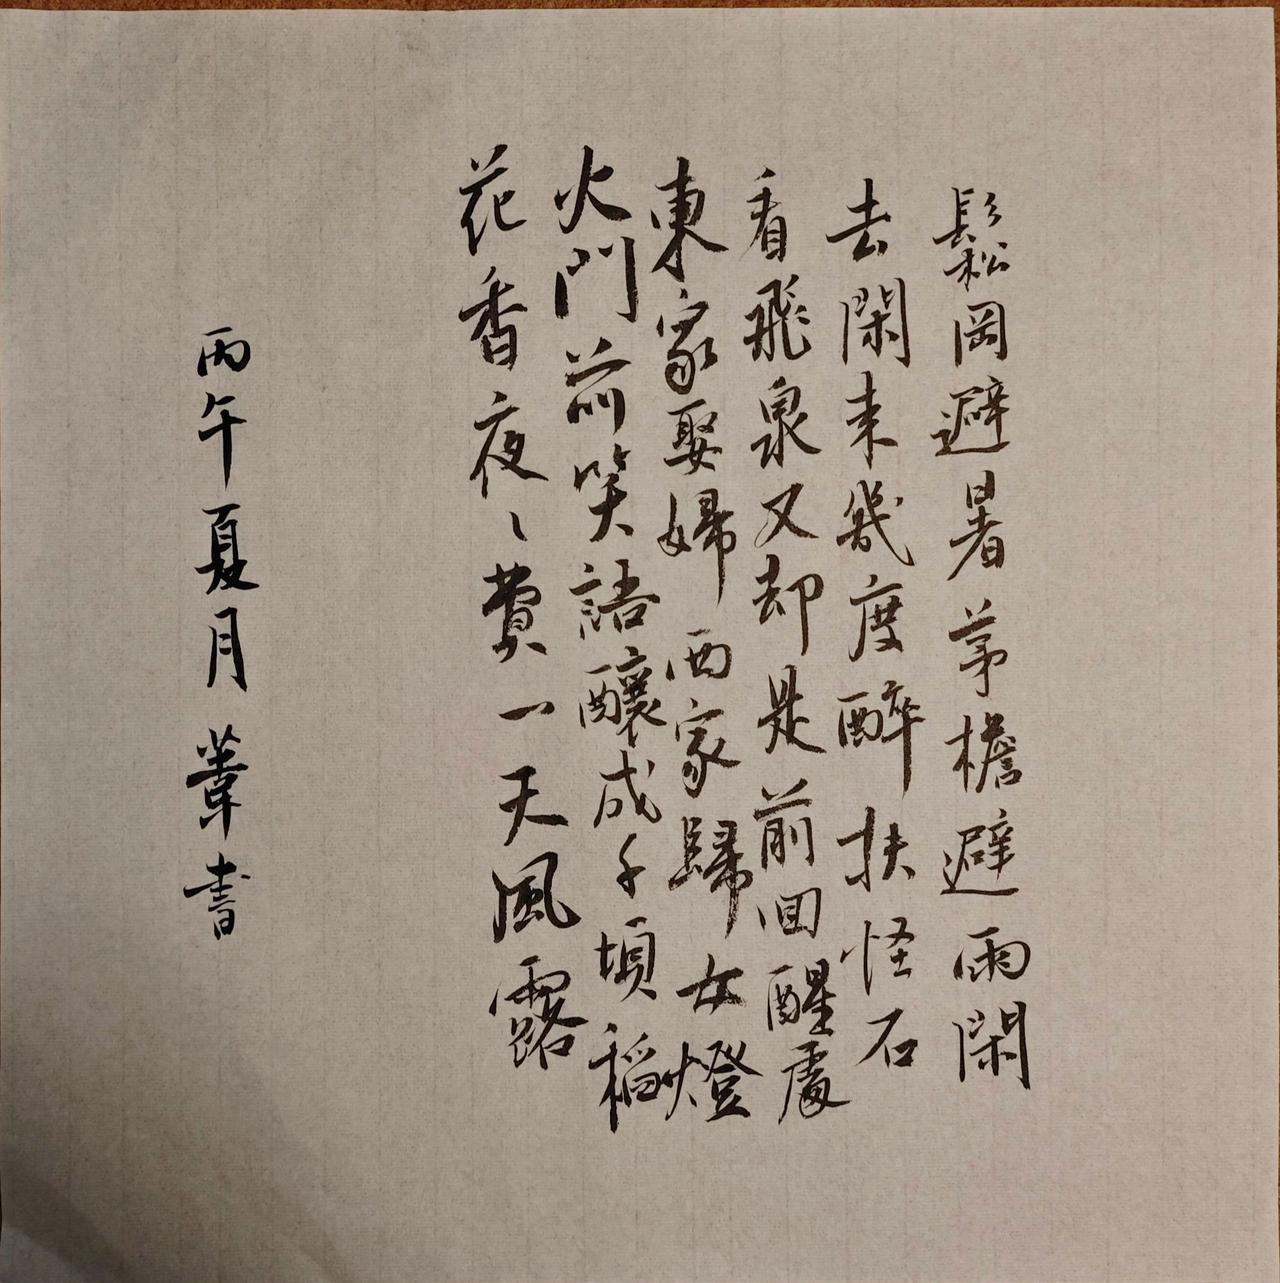 鬆岡避暑茅檐避雨閑
去閑来幾度醉扶怪石
看飛泉又却是前回醒處
東家娶婦西家歸女燈
火門前笑語釀成千頃稻
花香夜〻費一天風露
丙午夏月葦書